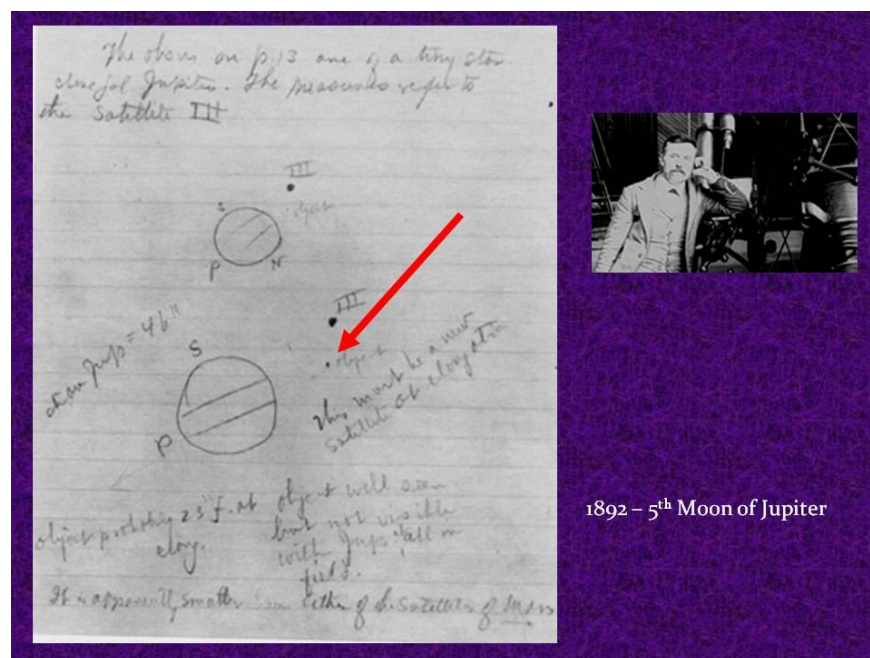 The obsns on p.13 are of a tiny star
close fol Jupiter. The measures refer to
the Satellite III
III
object
S
P
N
III
object
diam Jup = 46"
S
P
This must be a new
satellite at elongation
object probably 23" f. at
elong.
object well seen
but not visible
with Jup. all in
field.
It is apparently smaller than either of the satellites of Mars
1892 – 5th Moon of Jupiter